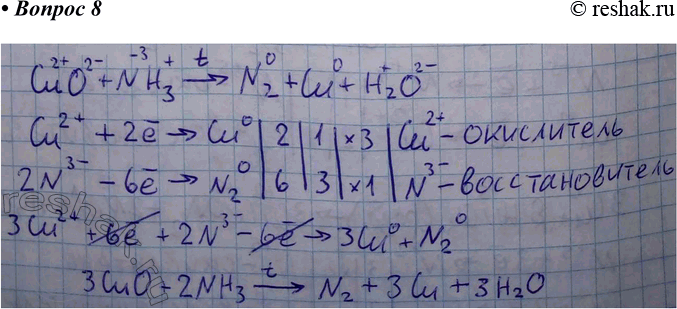 • Вопрос 8
© reshak.ru
Cu²⁺O²⁻ + N⁻³H₃⁺ →ᵗ N₂⁰ + Cu⁰ + H₂⁺O²⁻
Cu²⁺ + 2ē → Cu⁰ | 2 | 1 | ×3 | Cu²⁺ – окислитель
2N³⁻ – 6ē → N₂⁰ | 6 | 3 | ×1 | N³⁻ – восстановитель
3Cu²⁺ + 6ē + 2N³⁻ – 6ē → 3Cu⁰ + N₂⁰
3CuO + 2NH₃ →ᵗ N₂ + 3Cu + 3H₂O